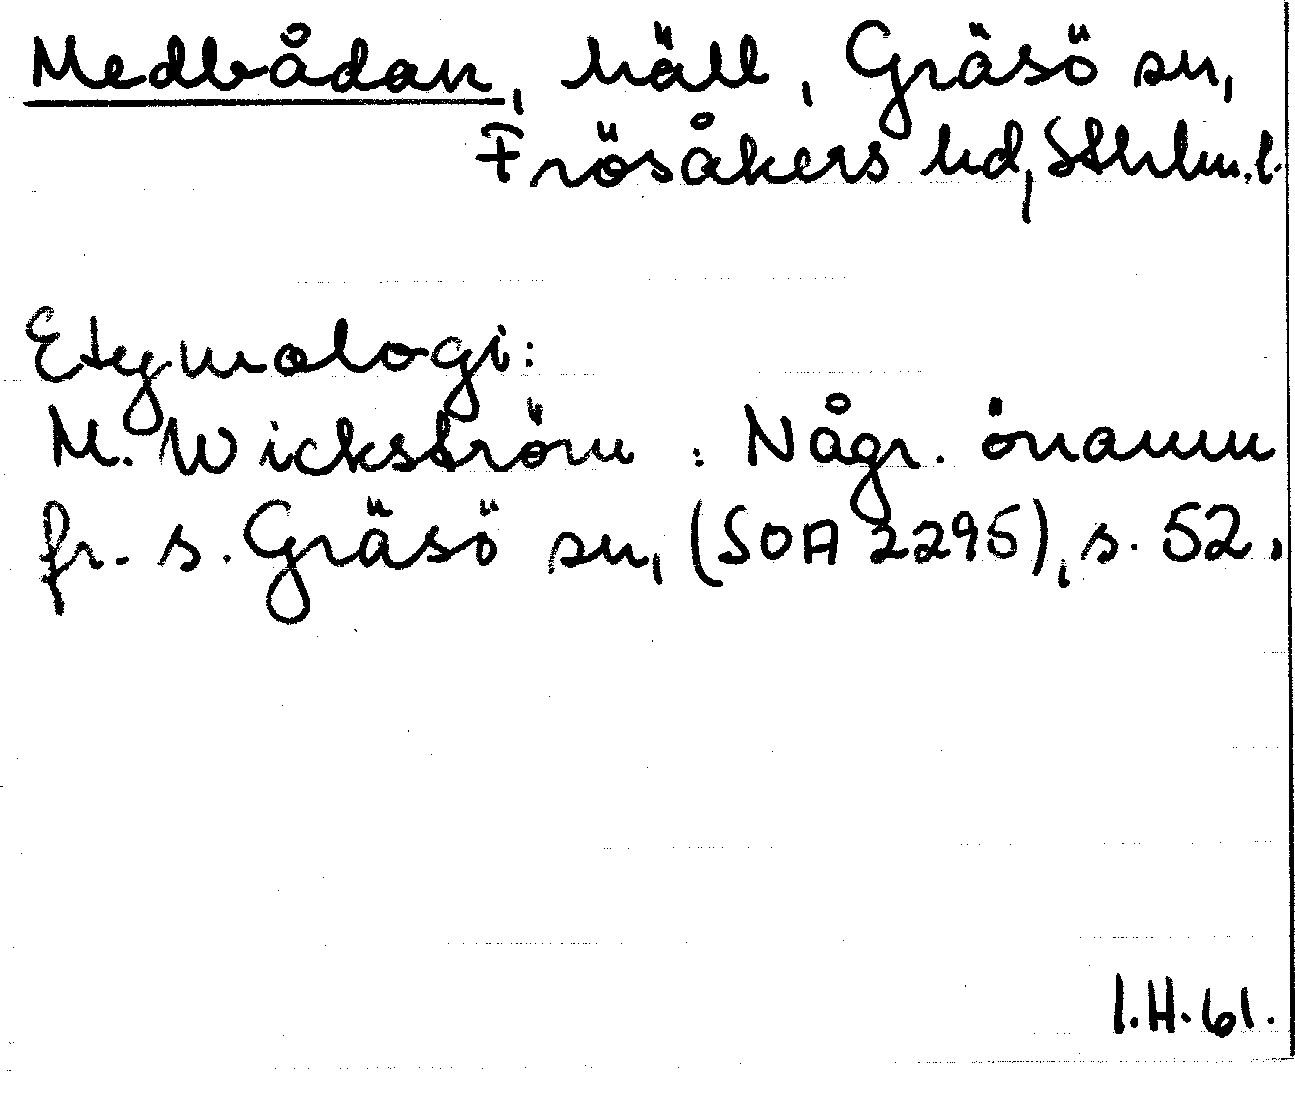 Medbådan, häll, Gräsö sn,
Frösåkers hd, Sthlm.l.
Etymologi:
M. Wickström: Någr. önamn
fr. s. Gräsö sn, (SOA 2295), s. 52.
I.H. 61.